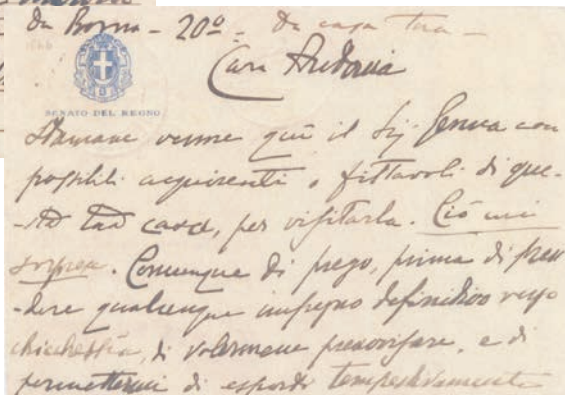 da Roma - 20º - da casa tua -
Cara Antonia
SENATO DEL REGNO
Stamane venne quì il Sig. Genua con
possibili acquirenti o fittavoli di que-
-sta tua casa, per visitarla. Ciò mi
sorprese. Comunque di prego, prima di pren
-dere qualunque impegno definitivo verso
chichessia, di volermene preavvisare, e di
permettermi di esporti tempestivamente